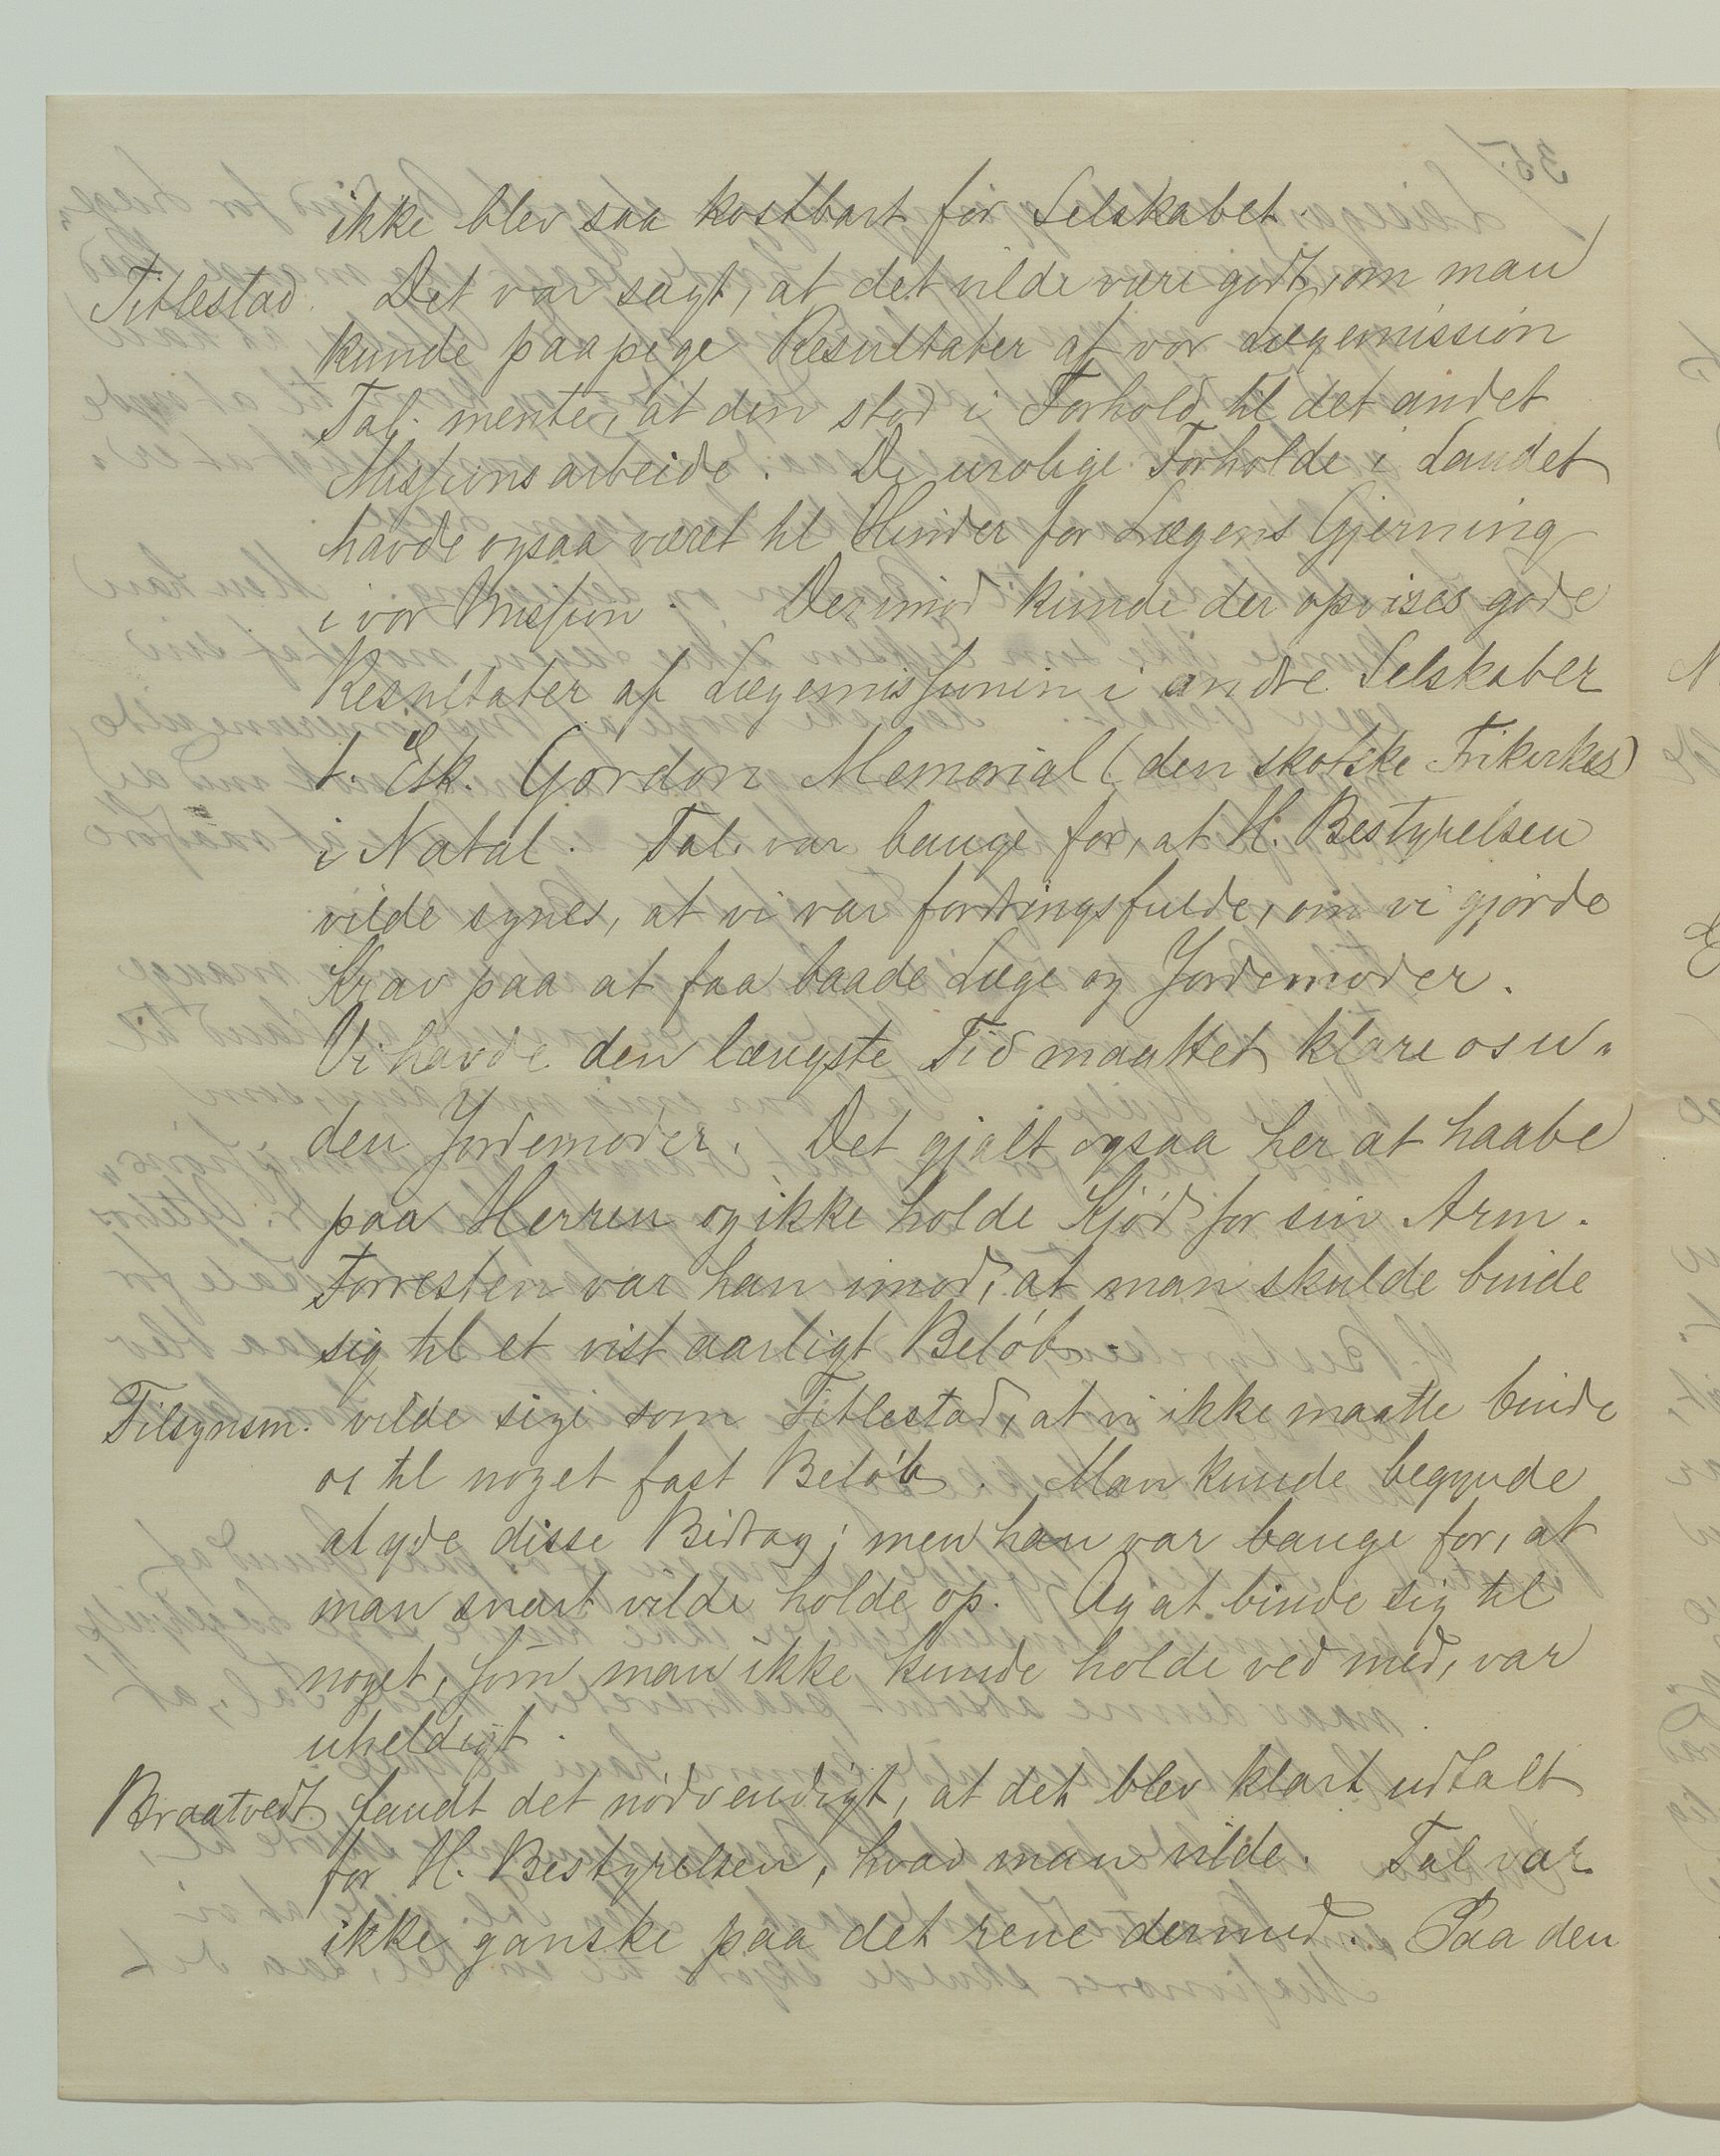 ikke blev saa kostbart for Selskabet.
Titlestad. Det var sagt, at det vilde være godt, om man
kunde paapege Resultater af vor Lægemission
Tal. mente, at den stod i Forhold til det andet
Missionsarbeide. De urolige Forholde i Landet
havde ogsaa været til Hinder for Lægens Gjerning
i vor Mission. Derimod kunde der opvises gode
Resultater af Lægemissionen i andre Selskaber
t. Esk. Gordon Memorial (den skotske Frikirkes)
i Natal. Tal. var bange for, at H. Bestyrelsen
vilde synes, at vi var fordringsfulde, om vi gjorde
Krav paa at faa baade Læge og Jordemoder.
Vi havde den længste Tid maattet klare os u-
den Jordemoder. Det gjalt ogsaa her at haabe
paa Herren og ikke holde Kjød for sin Arm.
Forresten var han imod, at man skulde binde
sig til et vist aarligt Beløb.
Tilsynsm. vilde sige som Titlestad, at vi ikke maatte binde
os til noget fast Beløb. Man kunde begynde
at yde disse Bidrag; men han var bange for, at
man snart vilde holde op. Og at binde sig til
noget, som man ikke kunde holde ved med, var
uheldigt.
Braatvedt fandt det nødvendigt, at det blev klart udtalt
for H. Bestyrelsen, hvad man vilde. Tal var
ikke ganske paa det rene dermed. Paa den